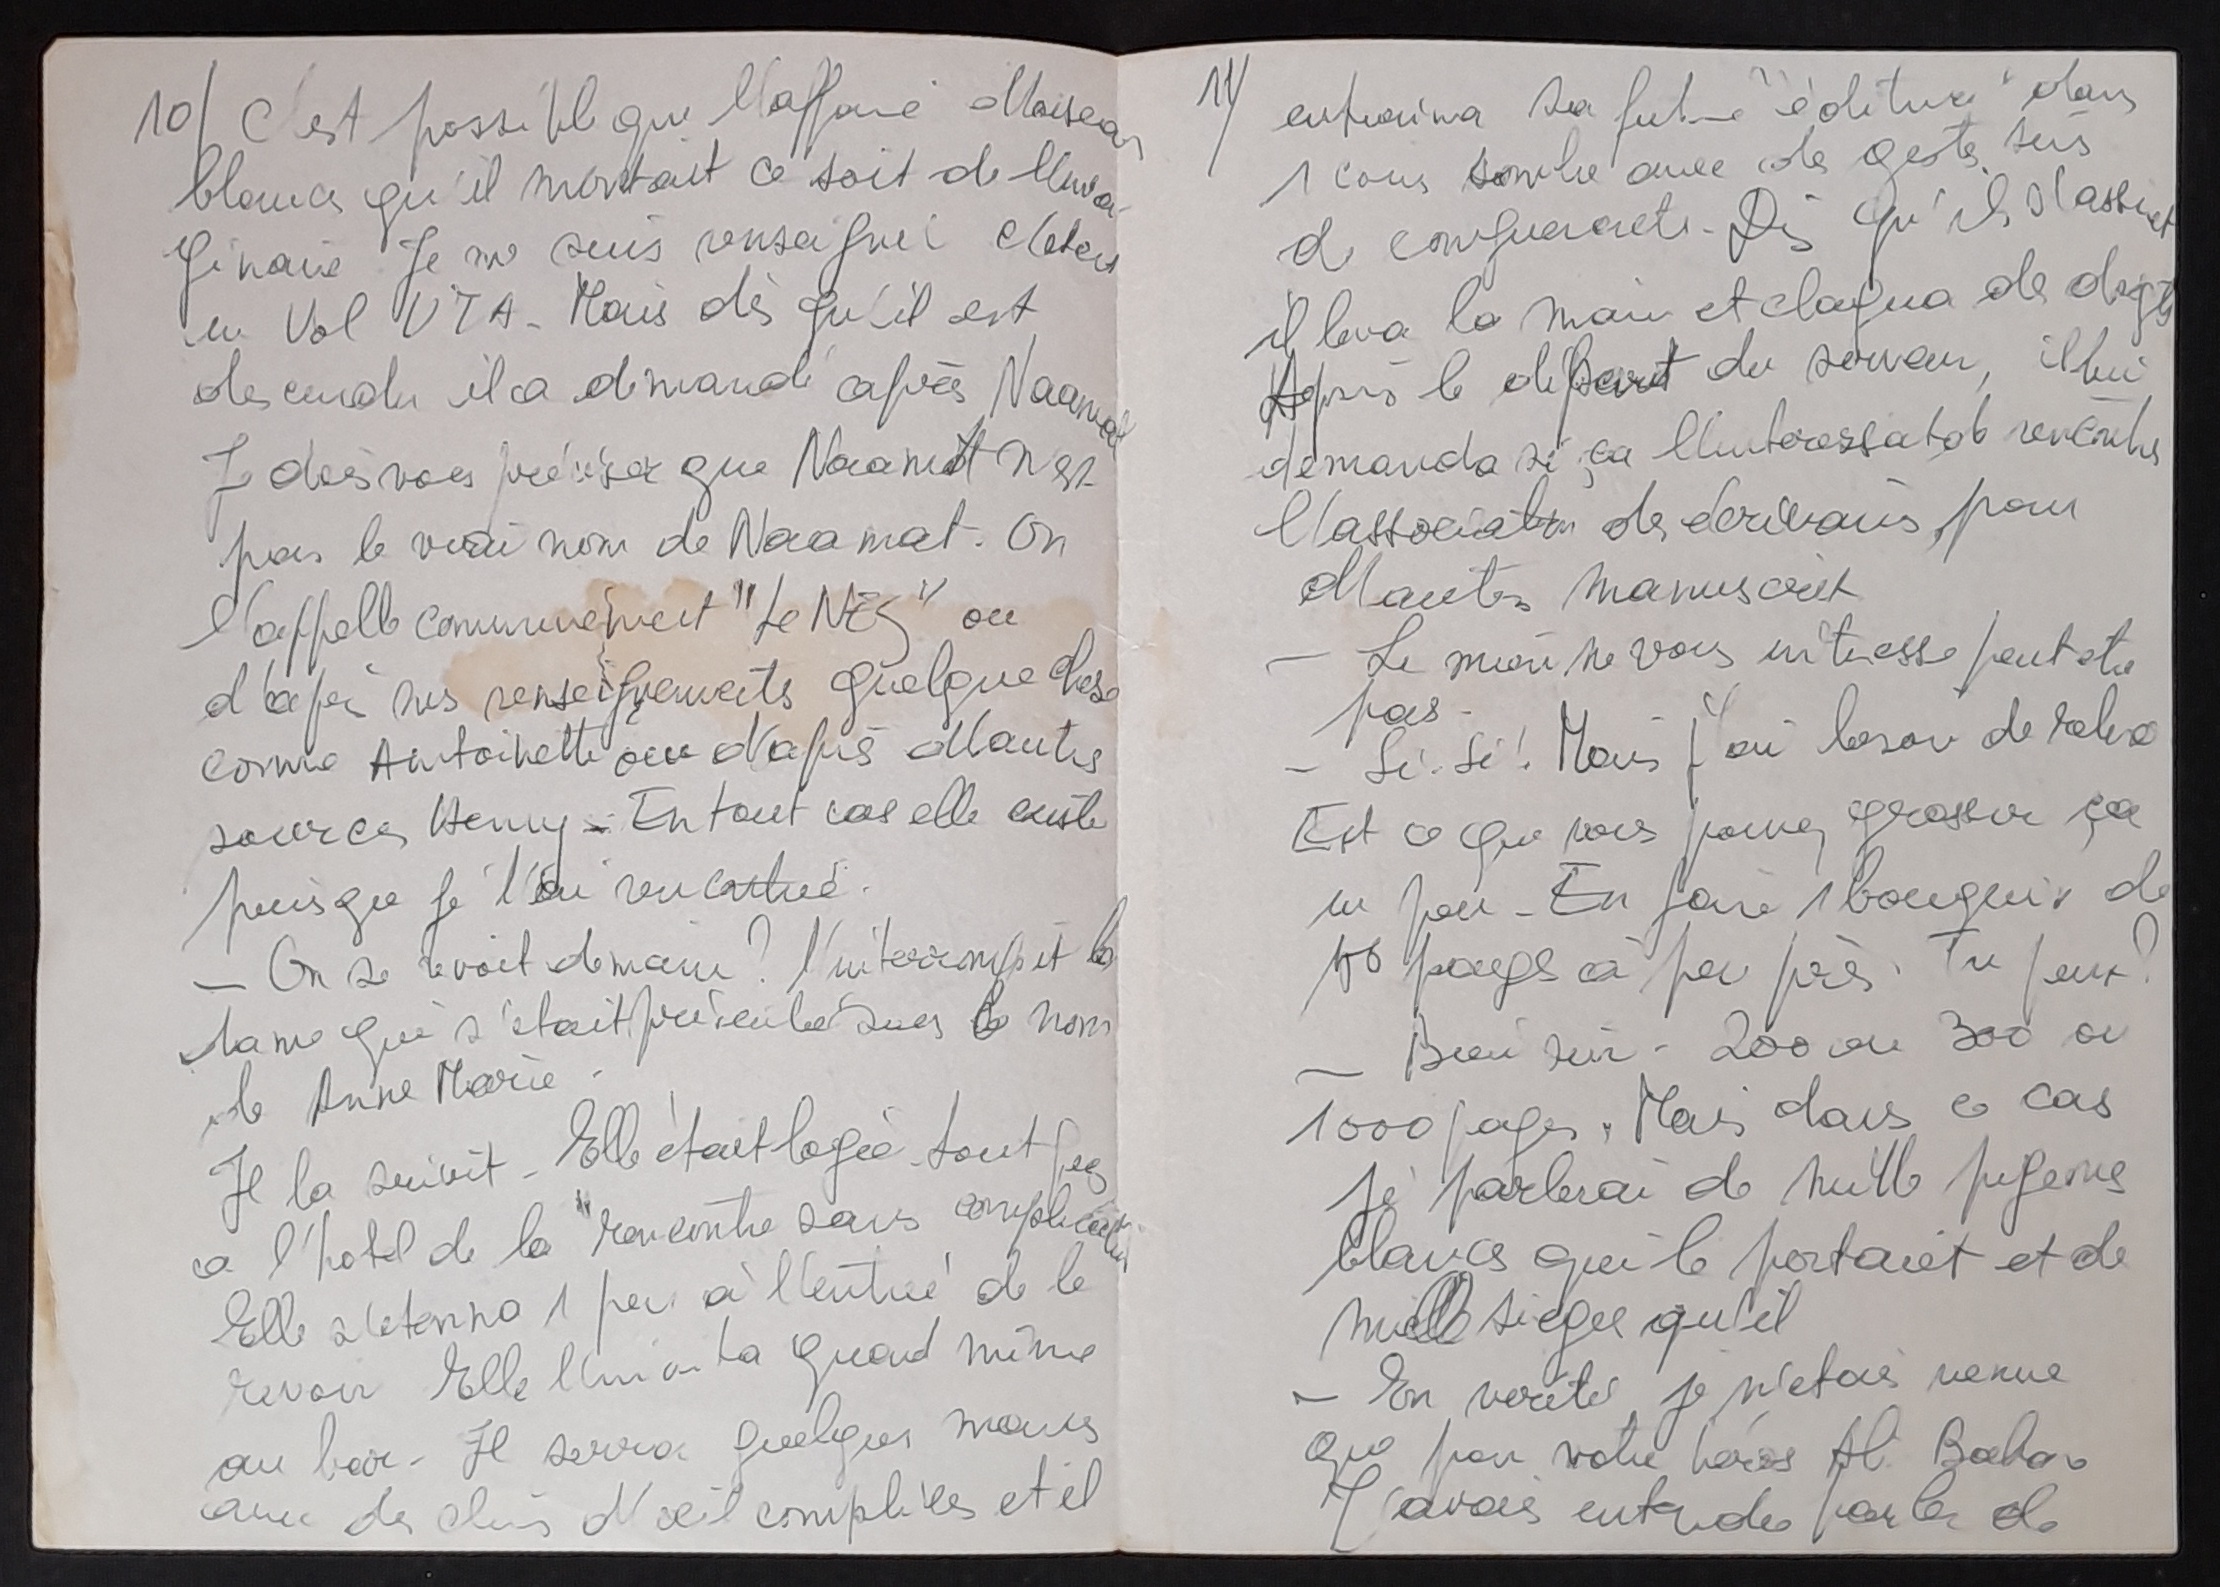 10/ C'est possible que l'affaire d'oiseaux
blancs qu'il montait ce soit de l'ima-
ginaire Je me suis renseigné c'etait
un Vol UTA - Mais dès qu'il est
descendu il a demandé après Naamat
Je dois vous préciser que Naamat n'est
pas le vrai nom de Naamat - On
l'appelle communément "Le Nez" ou
d'après mes renseignements quelque chose
comme Antoinette ou d'après d'autres
sources Henry - En tout cas elle existe
puisque je l'ai rencontrée.
— On se revoit demain ? l'interrompit la
dame qui s'était présentée sous le nom
de Anne Marie.
Il la suivit - Elle était logée tout
a l'hotel de la "rencontre sans complication
Elle s'etonna 1 peu à l'entrée de le
revoir Elle l'invita quand même
au bar - Il serra quelques mains
avec des clins d'œil complices et il
11/ entraina sa future "éditrice" dans
1 coin sombre avec des gestes sûrs
de conquerants - Dès qu'ils s'assirent
il leva la main et claqua des doigts
Après le départ du serveur, il lui
demanda si ça l'interessait de rencontrer
l'association des écrivains, pour
d'autres manuscrits
— Le mien ne vous intéresse peut etre
pas -
— Si. Si ! Mais j'ai besoin de
Est ce que vous pouvez grossir ça
un peu - En faire 1 bouquin de
pages à peu près. Tu peux ?
— Bien sûr - 200 ou 300 ou
1000 pages. Mais dans ce cas
je parlerai de mille pigeons
blancs qui le portaient et de
mille sieges qu'il
— En verité je n'etais venue
que pour votre héros Ali Baba
J'avais entendu parler de